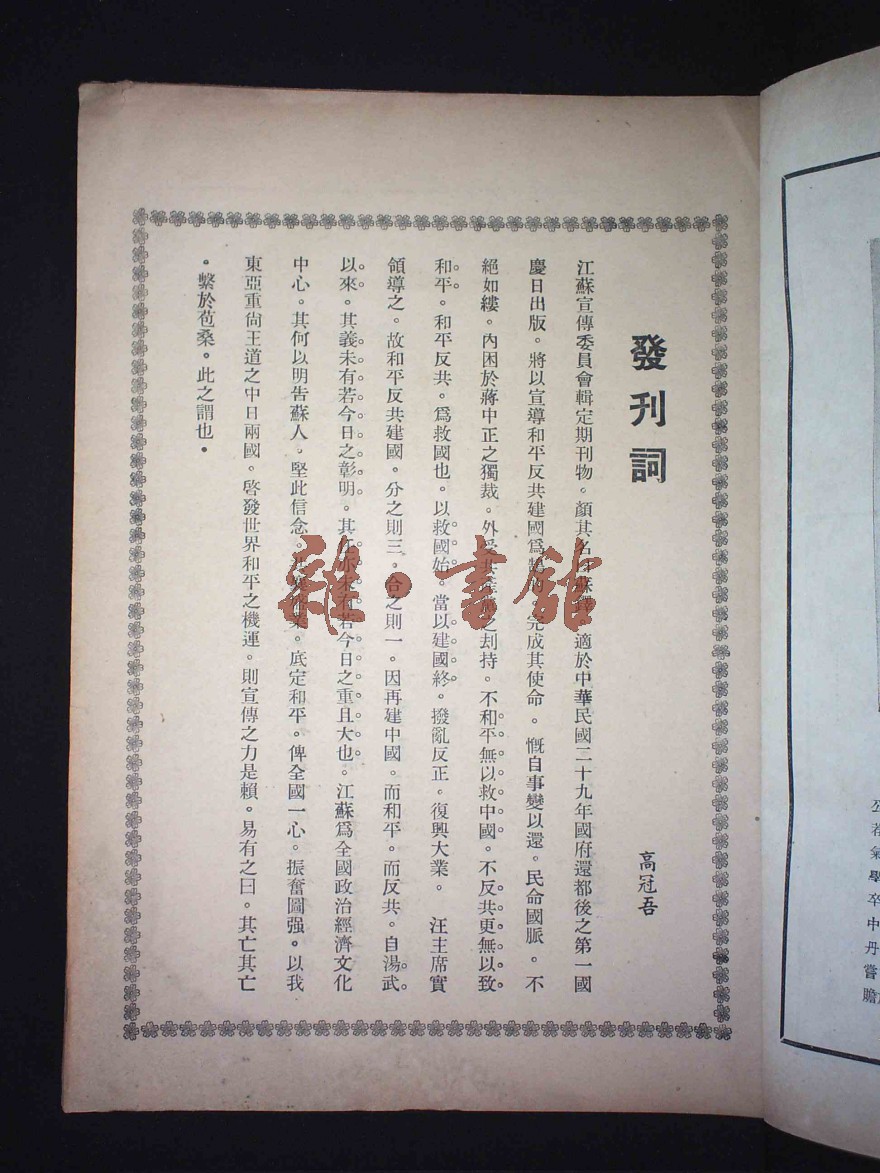 發刊詞
高冠吾
江蘇宣傳委員會輯定期刊物。顏其名曰蘇鐸 適於中華民國二十九年國府還都後之第一國
慶日出版。將以宣導和平反共建國爲 完成其使命。慨自事變以還。民命國脈。不
絕如縷。內困於蔣中正之獨裁。外受共 之刦持。不和平無以救中國。不反共更無以致
和平。和平反共。爲救國也。以救國始。當以建國終。撥亂反正。復興大業。 汪主席實
領導之。故和平反共建國。分之則三。合之則一。因再建中國。而和平。而反共。自湯武
以來。其義未有若今日之彰明。其 亦未有若今日之重且大也。江蘇爲全國政治經濟文化
中心。其何以明告蘇人。堅此信念。 底定和平。俾全國一心。振奮圖强。以我
東亞重尙王道之中日兩國。啓發世界和平之機運。則宣傳之力是賴。易有之曰。其亡其亡
。繫於苞桑。此之謂也。
雜·書館